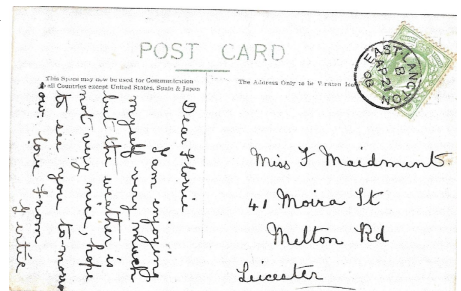 POST CARD
This Space may now be used for Communication
to all Countries except United States, Spain & Japan
The Address Only to be Written
EAST LANGTON
B
AP 21
08
Dear Florrie
I am enjoying
myself very much
but the weather is
not very nice, hope
to see you to-morrow
love from
Gertie
Miss F Maidment
41 Moira St
Melton Rd
Leicester